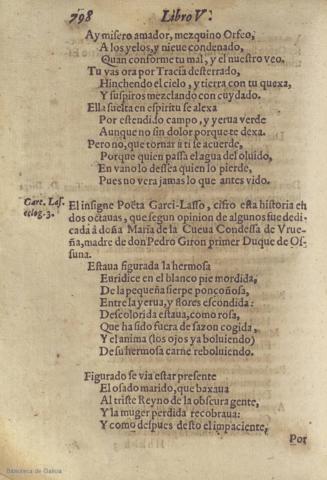 798 Libro V.
Ay misero amador, mezquino Orfeo,
A los yelos, y nieue condenado,
Quan conforme tu mal, y el nuestro veo.
Tu vas ora por Tracia desterrado,
Hinchendo el cielo, y tierra con tu quexa,
Y suspiros mezclando con cuydado.
Ella suelta en espiritu se alexa
Por estendido campo, y yerua verde
Aunque no sin dolor porque te dexa.
Pero no, que tornar à ti se acuerde,
Porque quien passa el agua del oluido,
En vano lo dessea quien lo pierde,
Pues no vera jamas lo que antes vido.
Garc. Lass.
eclog. 3.
El insigne Poëta Garci-Lasso, cifro esta historia en
dos octauas, que segun opinion de algunos fue dedi-
cada à doña Maria de la Cueua Condessa de Vrue-
ña, madre de don Pedro Giron primer Duque de Os-
suna.
Estaua figurada la hermosa
Euridice en el blanco pie mordida,
De la pequeña sierpe ponçoñosa,
Entre la yerua, y flores escondida:
Descolorida estaua, como rosa,
Que ha sido fuera de sazon cogida,
Y el anima (los ojos ya boluiendo)
De su hermosa carne reboluiendo.
Figurado se via estar presente
El osado marido, que baxaua
Al triste Reyno de la obscura gente,
Y la muger perdida recobraua:
Y como despues desto el impaciente,
Por
Biblioteca de Galicia